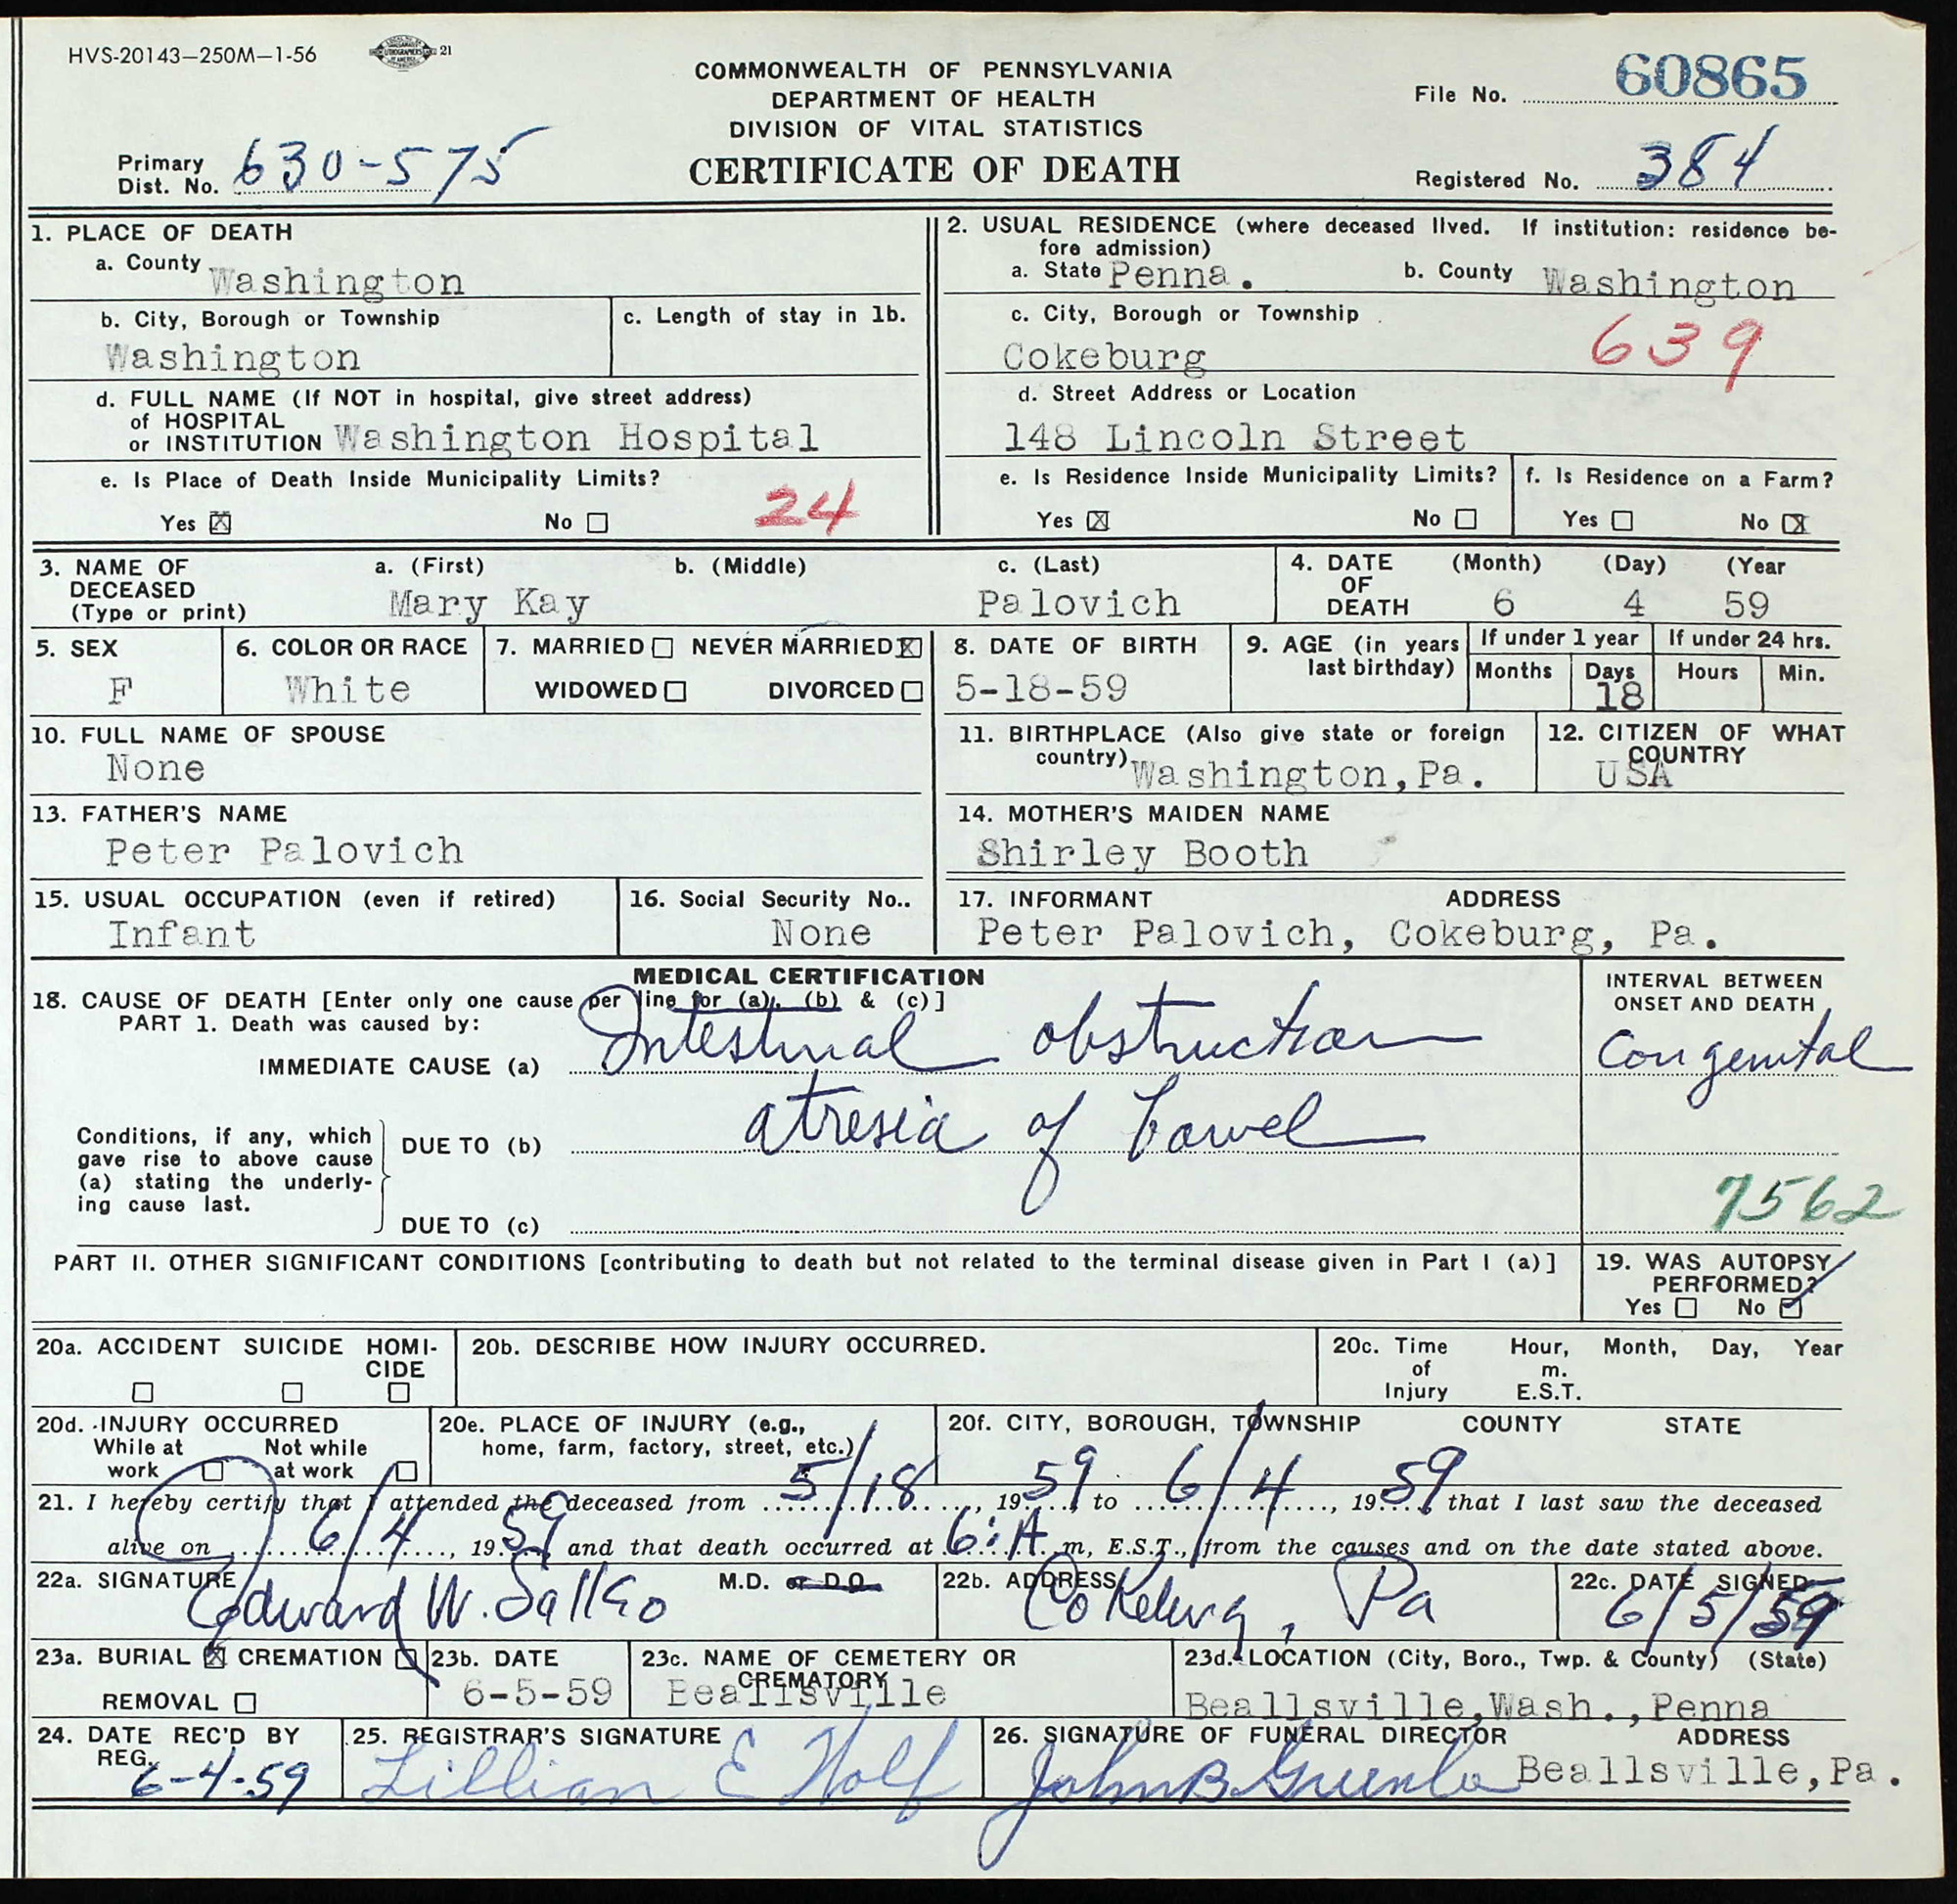 HVS-20143-250M-1-56 21
COMMONWEALTH OF PENNSYLVANIA
DEPARTMENT OF HEALTH
DIVISION OF VITAL STATISTICS
CERTIFICATE OF DEATH
File No. 60865
Primary Dist. No. 630-575
Registered No. 384
1. PLACE OF DEATH
a. County Washington
b. City, Borough or Township
Washington
c. Length of stay in 1b.
d. FULL NAME (If NOT in hospital, give street address)
of HOSPITAL
or INSTITUTION Washington Hospital
e. Is Place of Death Inside Municipality Limits?
Yes ☒ No ☐ 24
2. USUAL RESIDENCE (where deceased lived. If institution: residence be-
fore admission)
a. State Penna. b. County Washington
c. City, Borough or Township
Cokeburg 639
d. Street Address or Location
148 Lincoln Street
e. Is Residence Inside Municipality Limits?
Yes ☒ No ☐
f. Is Residence on a Farm?
Yes ☐ No ☒
3. NAME OF DECEASED (Type or print)
a. (First) b. (Middle) c. (Last)
Mary Kay Palovich
4. DATE OF DEATH (Month) (Day) (Year
6 4 59
5. SEX
F
6. COLOR OR RACE
White
7. MARRIED ☐ NEVER MARRIED ☒
WIDOWED ☐ DIVORCED ☐
8. DATE OF BIRTH
5-18-59
9. AGE (in years last birthday)
If under 1 year
Months Days
18
If under 24 hrs.
Hours Min.
10. FULL NAME OF SPOUSE
None
11. BIRTHPLACE (Also give state or foreign
country) Washington, Pa.
12. CITIZEN OF WHAT COUNTRY
USA
13. FATHER'S NAME
Peter Palovich
14. MOTHER'S MAIDEN NAME
Shirley Booth
15. USUAL OCCUPATION (even if retired)
Infant
16. Social Security No..
None
17. INFORMANT ADDRESS
Peter Palovich, Cokeburg, Pa.
MEDICAL CERTIFICATION
18. CAUSE OF DEATH [Enter only one cause per line for (a), (b) & (c)]
PART 1. Death was caused by:
IMMEDIATE CAUSE (a) Intestinal obstruction
INTERVAL BETWEEN
ONSET AND DEATH
Congenital
Conditions, if any, which
gave rise to above cause
(a) stating the underly-
ing cause last.
DUE TO (b) atresia of bowel
DUE TO (c)
7562
PART II. OTHER SIGNIFICANT CONDITIONS [contributing to death but not related to the terminal disease given in Part I (a)]
19. WAS AUTOPSY
PERFORMED?
Yes ☐ No ☑
20a. ACCIDENT SUICIDE HOMI-
CIDE
☐ ☐ ☐
20b. DESCRIBE HOW INJURY OCCURRED.
20c. Time of Injury Hour, m. E.S.T. Month, Day, Year
20d. INJURY OCCURRED
While at work ☐ Not while at work ☐
20e. PLACE OF INJURY (e.g.,
home, farm, factory, street, etc.)
20f. CITY, BOROUGH, TOWNSHIP COUNTY STATE
21. I hereby certify that I attended the deceased from 5/18, 1959 to 6/4, 1959 that I last saw the deceased
alive on 6/4, 1959 and that death occurred at 6:A m, E.S.T., from the causes and on the date stated above.
22a. SIGNATURE M.D. or D.O.
Edward W. Sallko
22b. ADDRESS
Cokeburg, Pa
22c. DATE SIGNED
6/5/59
23a. BURIAL ☒ CREMATION ☐
REMOVAL ☐
23b. DATE
6-5-59
23c. NAME OF CEMETERY OR
CREMATORY
Beallsville
23d. LOCATION (City, Boro., Twp. & County) (State)
Beallsville, Wash., Penna
24. DATE REC'D BY
REG. 6-4-59
25. REGISTRAR'S SIGNATURE
Lillian E Wolf
26. SIGNATURE OF FUNERAL DIRECTOR ADDRESS
John B Greenlee Beallsville, Pa.